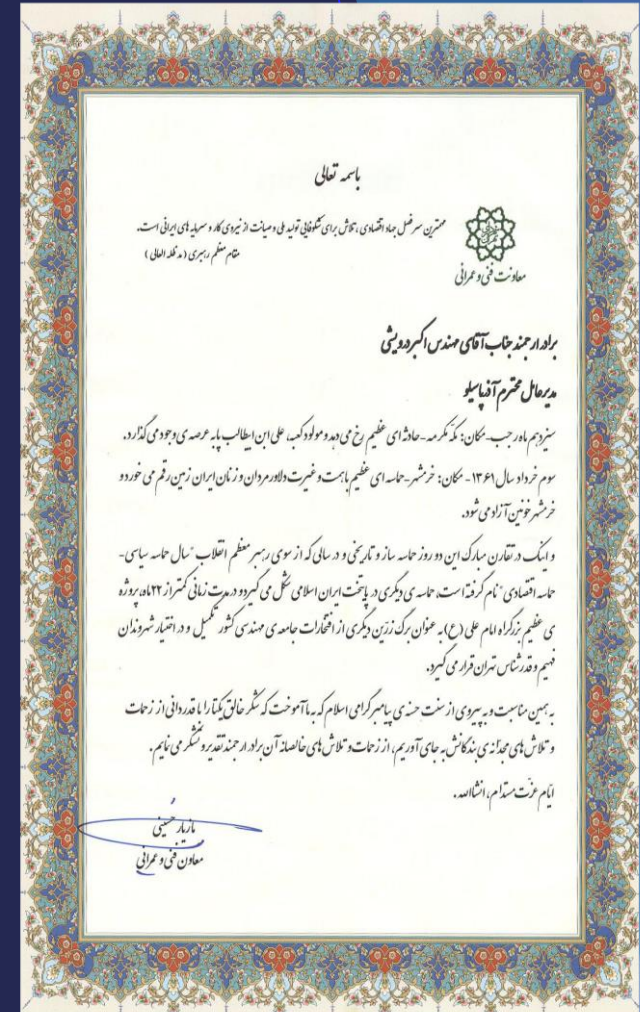 باسمه تعالی
مهمترین سرفصل جهاد اقتصادی، تلاش برای شکوفایی تولید ملی و صیانت از نیروی کار و سرمایه های ایرانی است.
مقام معظم رهبری (مد ظله العالی)
معاونت فنی و عمرانی
برادر ارجمند جناب آقای مهندس اکبر درویشی
مدیرعامل محترم آذرپاسیلو
سیزدهم ماه رجب - مکان: مکه مکرمه - حادثه ای عظیم رخ می دهد و مولود کعبه، علی ابن ابیطالب پا به عرصه ی وجود می گذارد.
سوم خرداد سال ۱۳۶۱ - مکان: خرمشهر - حماسه ای عظیم با همت و غیرت دلاور مردان و زنان ایران زمین رقم می خورد و
خرمشهر خونین آزاد می شود.
و اینک در تقارن مبارک این دو روز حماسه ساز و تاریخی و در سالی که از سوی رهبر معظم انقلاب "سال حماسه سیاسی-
حماسه اقتصادی" نام گرفته است، حماسه ی دیگری در پایتخت ایران اسلامی شکل می گیرد و در مدت زمانی کمتر از ۲۲ ماه، پروژه
ی عظیم بزرگراه امام علی (ع) به عنوان برگ زرین دیگری از افتخارات جامعه ی مهندسی کشور تکمیل و در اختیار شهروندان
فهیم و قدرشناس تهران قرار می گیرد.
به همین مناسبت و به پیروی از سنت حسنه ی پیامبر گرامی اسلام که به ما آموخت که شکر خالق یکتا را با قدردانی از زحمات
و تلاش های مجدانه ی بندگانش به جای آوریم، از زحمات و تلاش های خالصانه آن برادر ارجمند تقدیر و تشکر می نمایم.
ایام عزت مستدام، انشاالله.
مازیار حسینی
معاون فنی و عمرانی